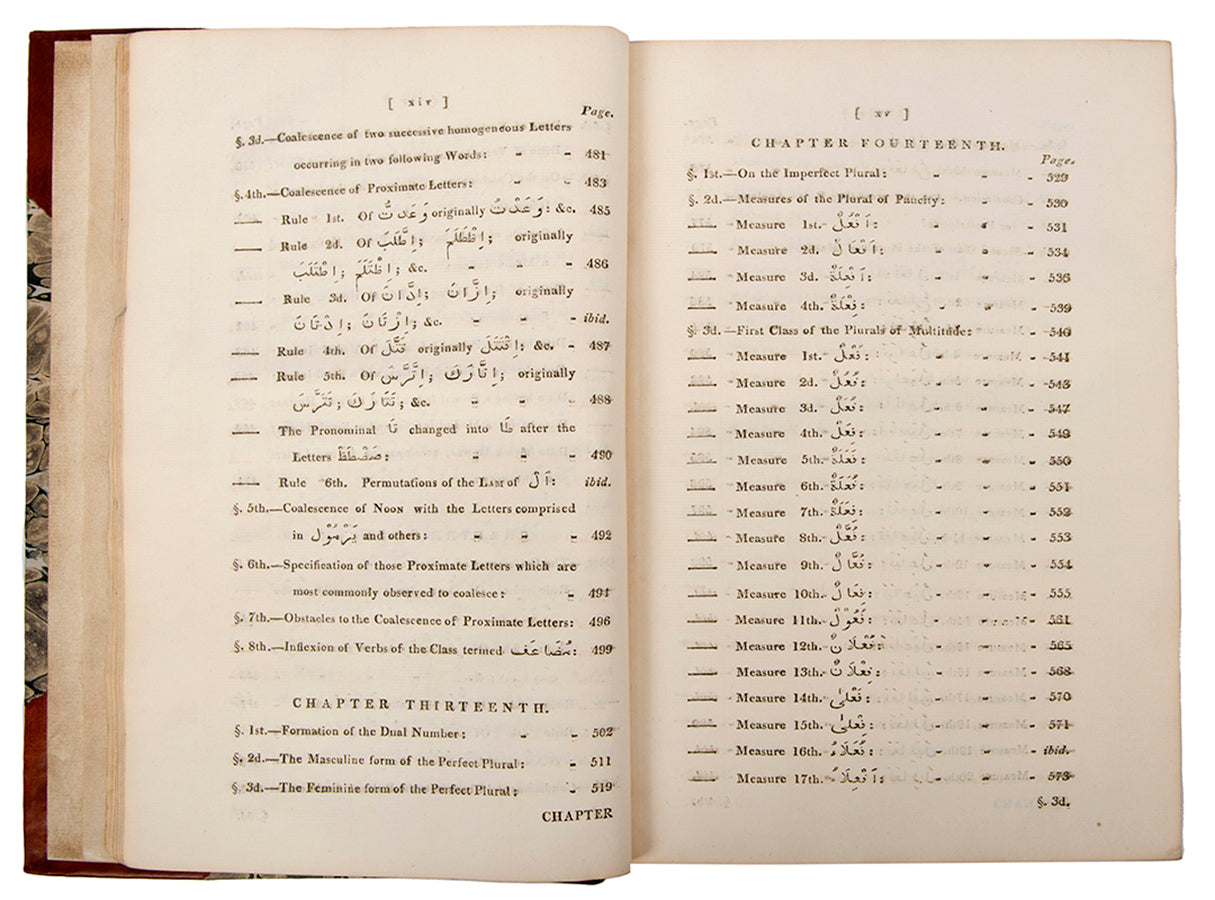 [ xiv ]
Page.
§. 3d.—Coalescence of two successive homogeneous Letters
occurring in two following Words: - - 481
§. 4th.—Coalescence of Proximate Letters: - - 483
—— Rule 1st. Of وَعَدتُّ originally وَعَدْتُ: &c. 485
—— Rule 2d. Of اِطَّلَبَ; اِظَّلَمَ; originally
اِطْتَلَبَ; اِظْتَلَمَ; &c. - - 486
—— Rule 3d. Of اِدَّانَ; اِزَّانَ; originally
اِدْتَانَ; اِزْتَانَ; &c. - - - ibid.
—— Rule 4th. Of قَتَّلَ originally اِقْتَتَلَ: &c. - 487
—— Rule 5th. Of اِتَّرَّسَ; اِتَّارَكَ; originally
تَتَرَّسَ; تَتَارَكَ; &c. - - - 488
—— The Pronominal تَا changed into طَا after the
Letters صَضْطَظَ: - - - 490
—— Rule 6th. Permutations of the LAM of اَلْ: ibid.
§. 5th.—Coalescence of NOON with the Letters comprised
in يَرْمُوْلَ and others: - - - 492
§. 6th.—Specification of those Proximate Letters which are
most commonly observed to coalesce: - 494
§. 7th.—Obstacles to the Coalescence of Proximate Letters: 496
§. 8th.—Inflexion of Verbs of the Class termed مُضَاعَف: 499
CHAPTER THIRTEENTH.
§. 1st.—Formation of the Dual Number: - - 502
§. 2d.—The Masculine form of the Perfect Plural: - 511
§. 3d.—The Feminine form of the Perfect Plural: - 519
CHAPTER
[ xv ]
CHAPTER FOURTEENTH.
Page.
§. 1st.—On the Imperfect Plural: - - - 529
§. 2d.—Measures of the Plural of Paucity: - - 530
—— Measure 1st. اَفْعُلٌ: - - - 531
—— Measure 2d. اَفْعَالٌ: - - - 534
—— Measure 3d. اَفْعِلَةٌ: - - - 536
—— Measure 4th. فِعْلَةٌ: - - - 539
§. 3d.—First Class of the Plurals of Multitude: - - 540
—— Measure 1st. فُعْلٌ: - - - 541
—— Measure 2d. فُعُلٌ: - - - 543
—— Measure 3d. فُعَلٌ: - - - 547
—— Measure 4th. فِعَلٌ: - - - 549
—— Measure 5th. فَعَلَةٌ: - - - 550
—— Measure 6th. فُعَلَةٌ: - - - 551
—— Measure 7th. فِعَلَةٌ: - - - 552
—— Measure 8th. فُعَّلٌ: - - - 553
—— Measure 9th. فُعَّالٌ: - - - 554
—— Measure 10th. فِعَالٌ: - - - 555
—— Measure 11th. فُعُوْلٌ: - - - 561
—— Measure 12th. فُعْلَانٌ: - - - 565
—— Measure 13th. فِعْلَانٌ: - - - 568
—— Measure 14th. فَعْلَىٰ - - - 570
—— Measure 15th. فِعْلَىٰ: - - - 571
—— Measure 16th. فُعَلَاءُ: - - - ibid.
—— Measure 17th. اَفْعِلَاءُ: - - - 573
§. 3d.